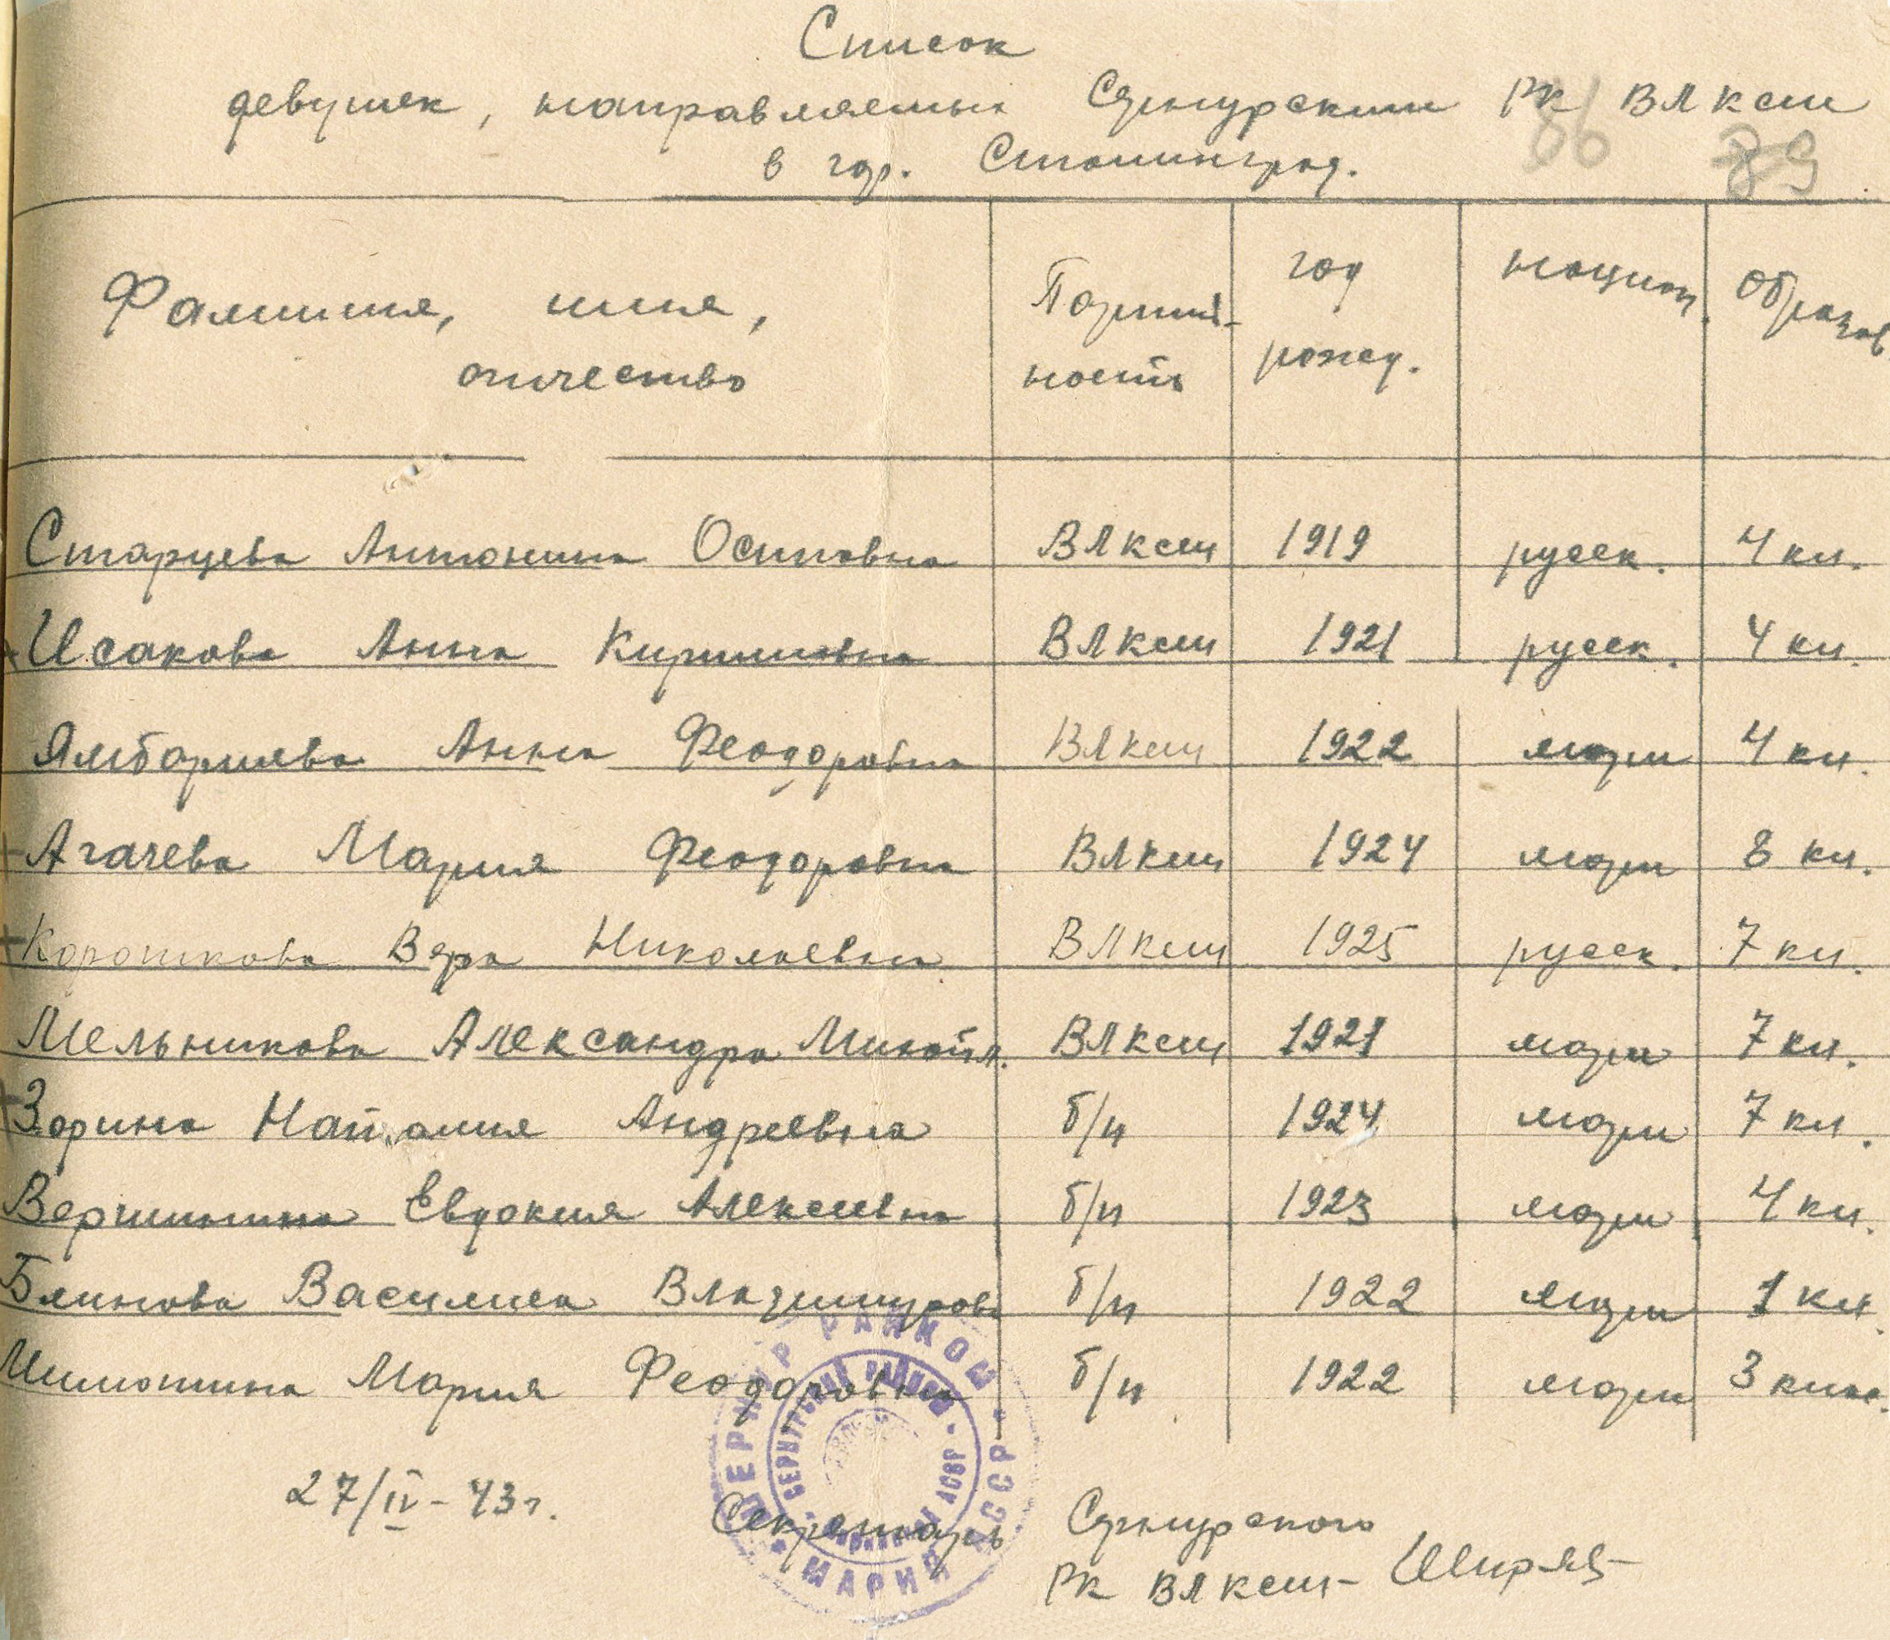 Список
девушек, направляемых Сернурским РК ВЛКСМ
86 89
в гор. Сталинград.
Фамилия, имя, отчество Партий-ность год рожд. национ. образов
Старцева Антонина Осиповна ВЛКСМ 1919 русск. 4 кл.
Исакова Анна Кирилловна ВЛКСМ 1921 русск. 4 кл.
Ямбаршева Анна Феодоровна ВЛКСМ 1922 мари 4 кл.
Агачева Мария Феодоровна ВЛКСМ 1924 мари 8 кл.
Корошкова Вера Николаевна ВЛКСМ 1925 русск. 7 кл.
Мельникова Александра Михайл. ВЛКСМ 1921 мари 7 кл.
Зорина Наталия Андреевна б/п 1924 мари 7 кл.
Вершинина Евдокия Алексеевна б/п 1923 мари 4 кл.
Блинова Василиса Владимировн б/п 1922 мари 1 кл.
Мария Феодоровна б/п 1922 мари 3 клас.
СЕРНУР РАЙКОМ МАРИЙ АССР
СЕРНУРСКИЙ РАЙКОМ МАРИЙСКОЙ АССР
27/IV-43г.
Секретарь Сернурского
РК ВЛКСМ-